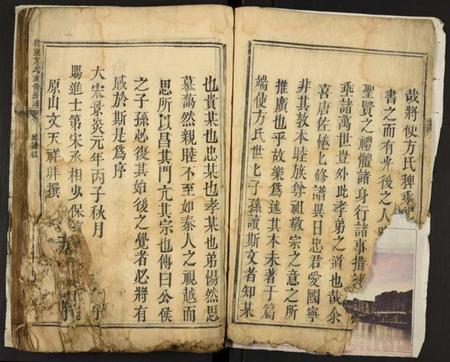 哉將使方氏稗
書之而有光後之人
聖賢之禮體諸身行諸事措諸
乖諸萬世豈外此孝弟之道也哉余
喜唐佐惓匕修譜異日忠君愛國寧
非其敦本睦族尊祖敬宗之意之所
推廣也乎故樂為述其本末著于篇
端使方氏世匕子孫讀斯文者知某
也貴某也忠某也孝某也弟惕然思
慕藹然親睦不至如秦人之視越而
思所以昌其門亢其宗也傳曰公侯
之子孫必復其始後之覺者必將有
感於斯是為序
大宋景炎元年丙子秋月
賜進士第宋丞相少保
原山文天祥拜撰